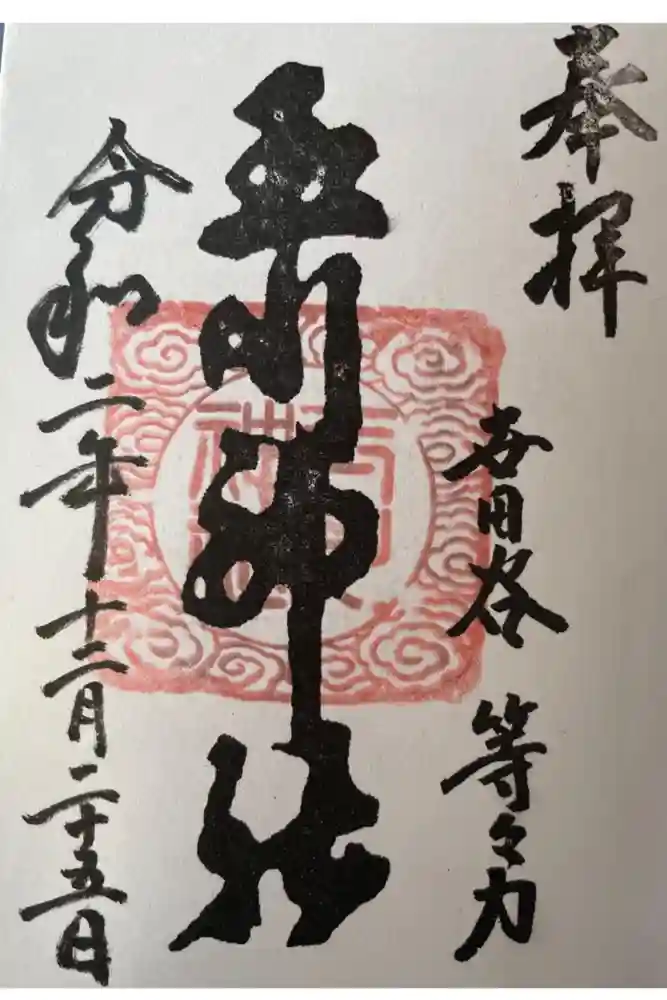 奉拝
世田谷 等々力
玉川神社
令和二年十二月二十五日